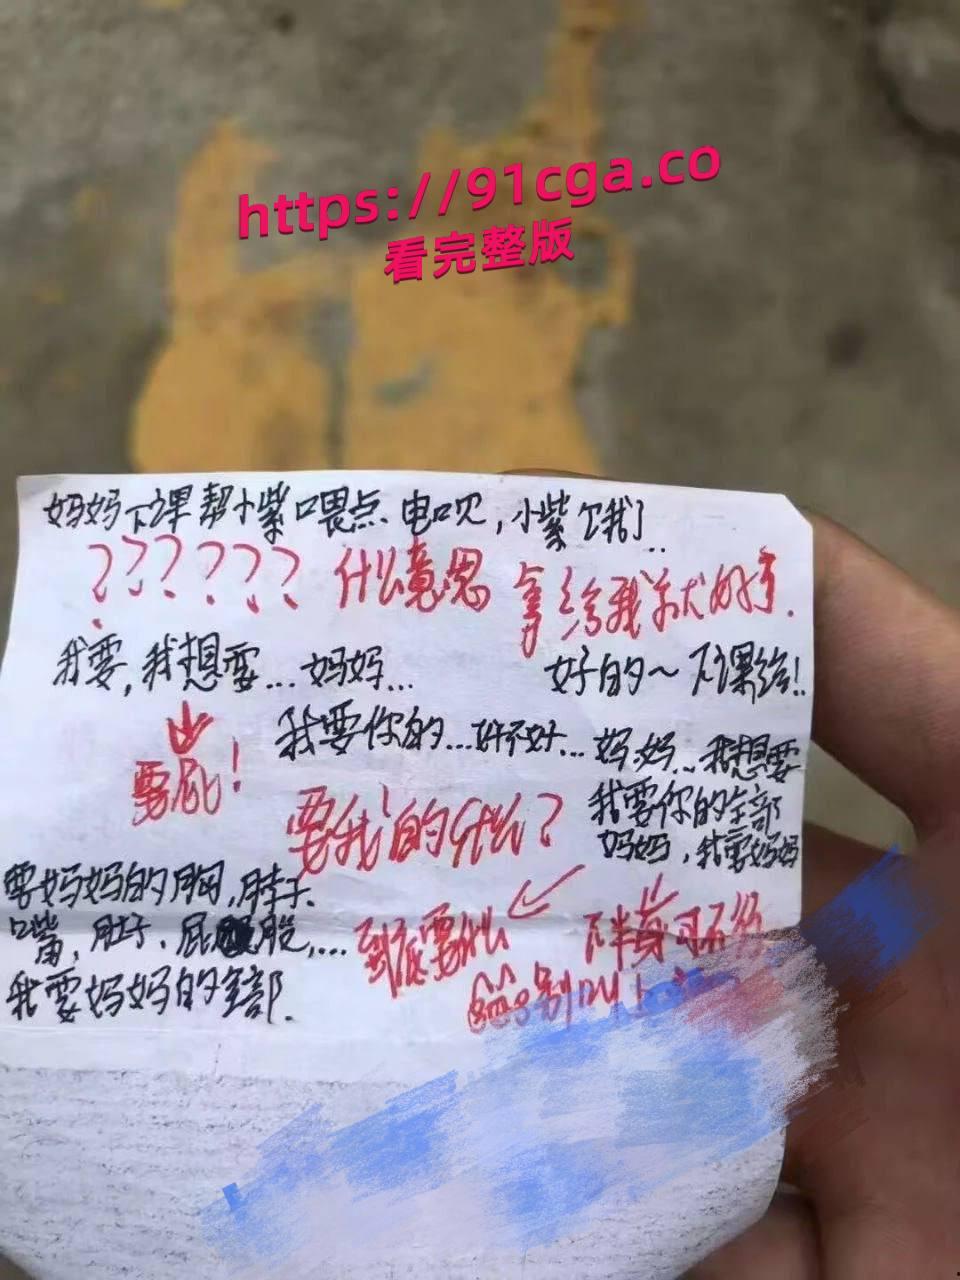 https://91cga.co
看完整版
妈妈下课帮小紫喂点电呗，小紫饿了..
?????? 什么意思
拿给我就好了.
我要，我想要...妈妈...
好的~下课给!!
要屁!
我要你的...好不好...
妈妈...我想要
我要你的全部
妈妈，我要妈妈
要我的什么?
要妈妈的胸，脖子.
嘴，肚子，屁股....
我要妈妈的全部.
到底要什么
下半身可不
别叫